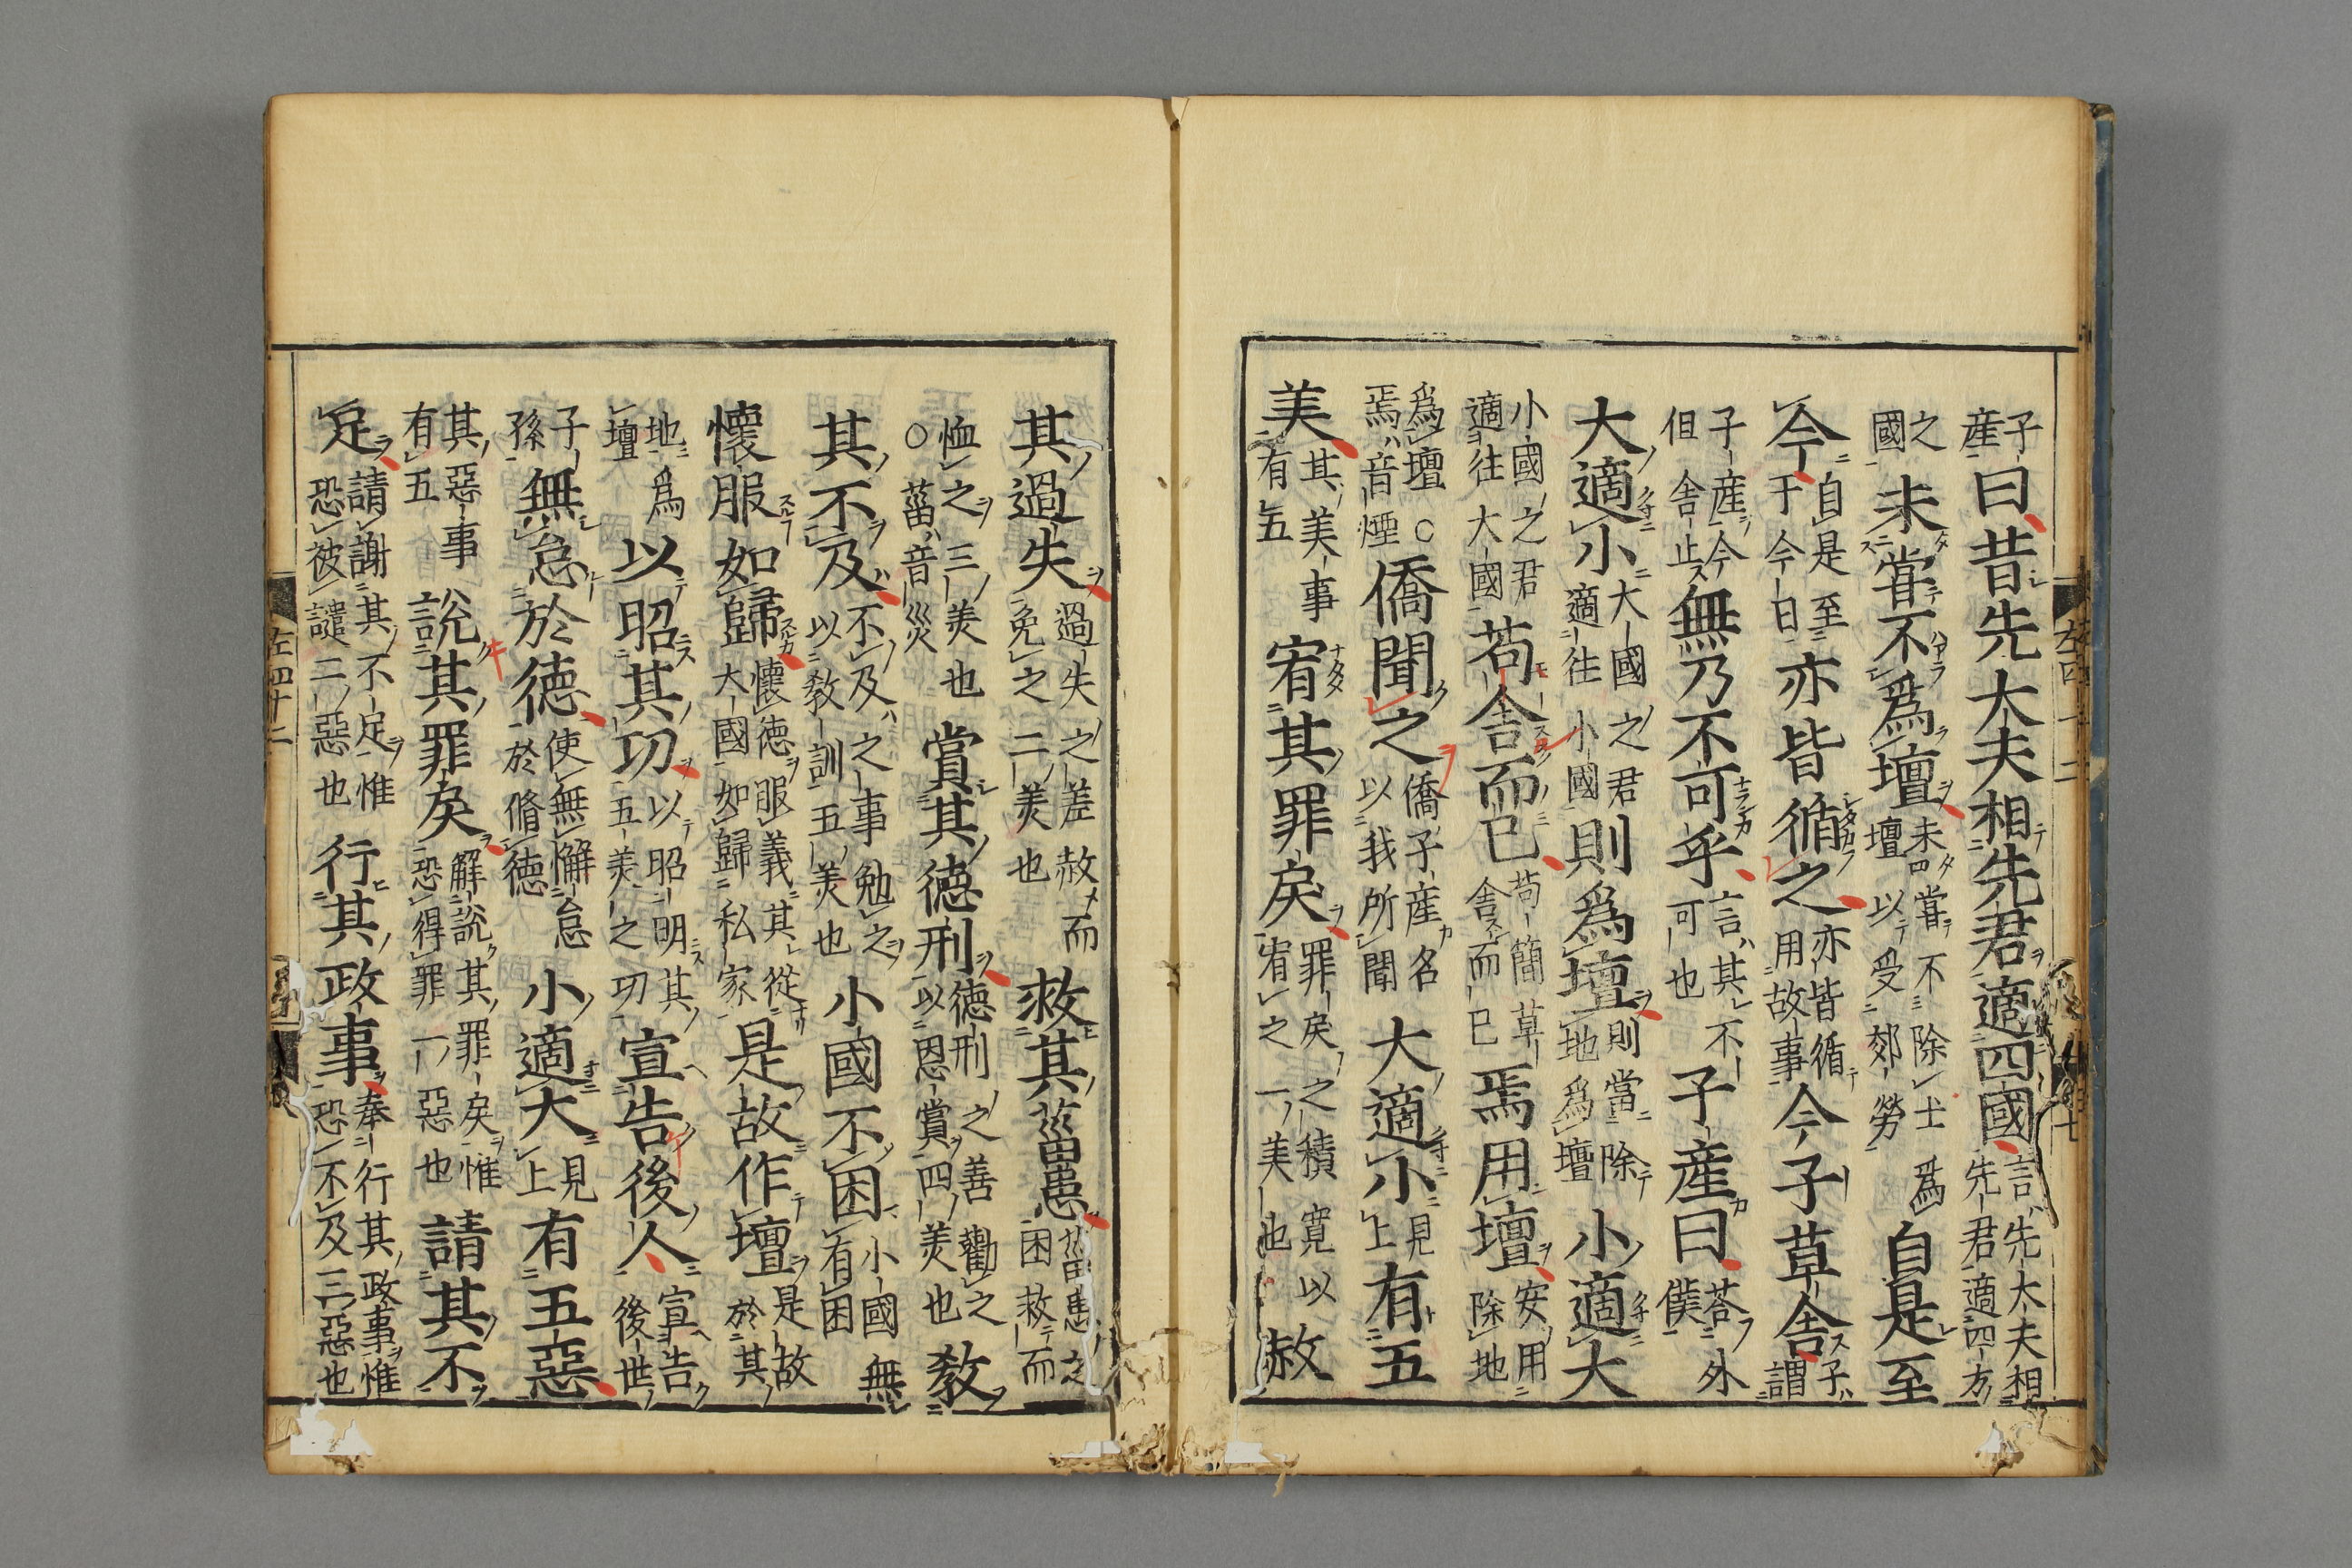 子産曰昔先大夫相先君適四國言先大夫相先君適四方
之國未嘗不爲壇未嘗不除土爲壇以受郊勞自是至
今自是至于今日亦皆循之亦皆循用故事今子草舍子謂
子産今但舍止無乃不可乎言其不可也子産曰荅外僕
大適小大國之君適往小國則爲壇則當除地爲壇小適大
小國之君適往大國苟舍而已苟簡草舍而已焉用壇安用除地
爲壇○焉音煙僑聞之僑子産名以我所聞大適小見上有五
美其美事有五宥其罪戾罪戾之積寛以宥之一美也赦
其過失過失之差赦而免之二美也救其菑患菑患之困救而
恤之三美也○菑音災賞其德刑德刑之善勸之以恩賞四美也敎
其不及不及之事勉之以敎訓五美也小國不困小國無有困
懷服如歸懷德服義其從大國如歸私家是故作壇是故於其
地爲壇以昭其功以昭明其五美之功宣告後人宣告後世
子孫無怠於德使無懈怠於脩德小適大見上有五惡
其惡事有五說其罪戾解說其罪戾惟恐得罪一惡也請其不
足請謝其不足惟恐被譴二惡也行其政事奉行其政事惟恐不及三惡也
左四十二